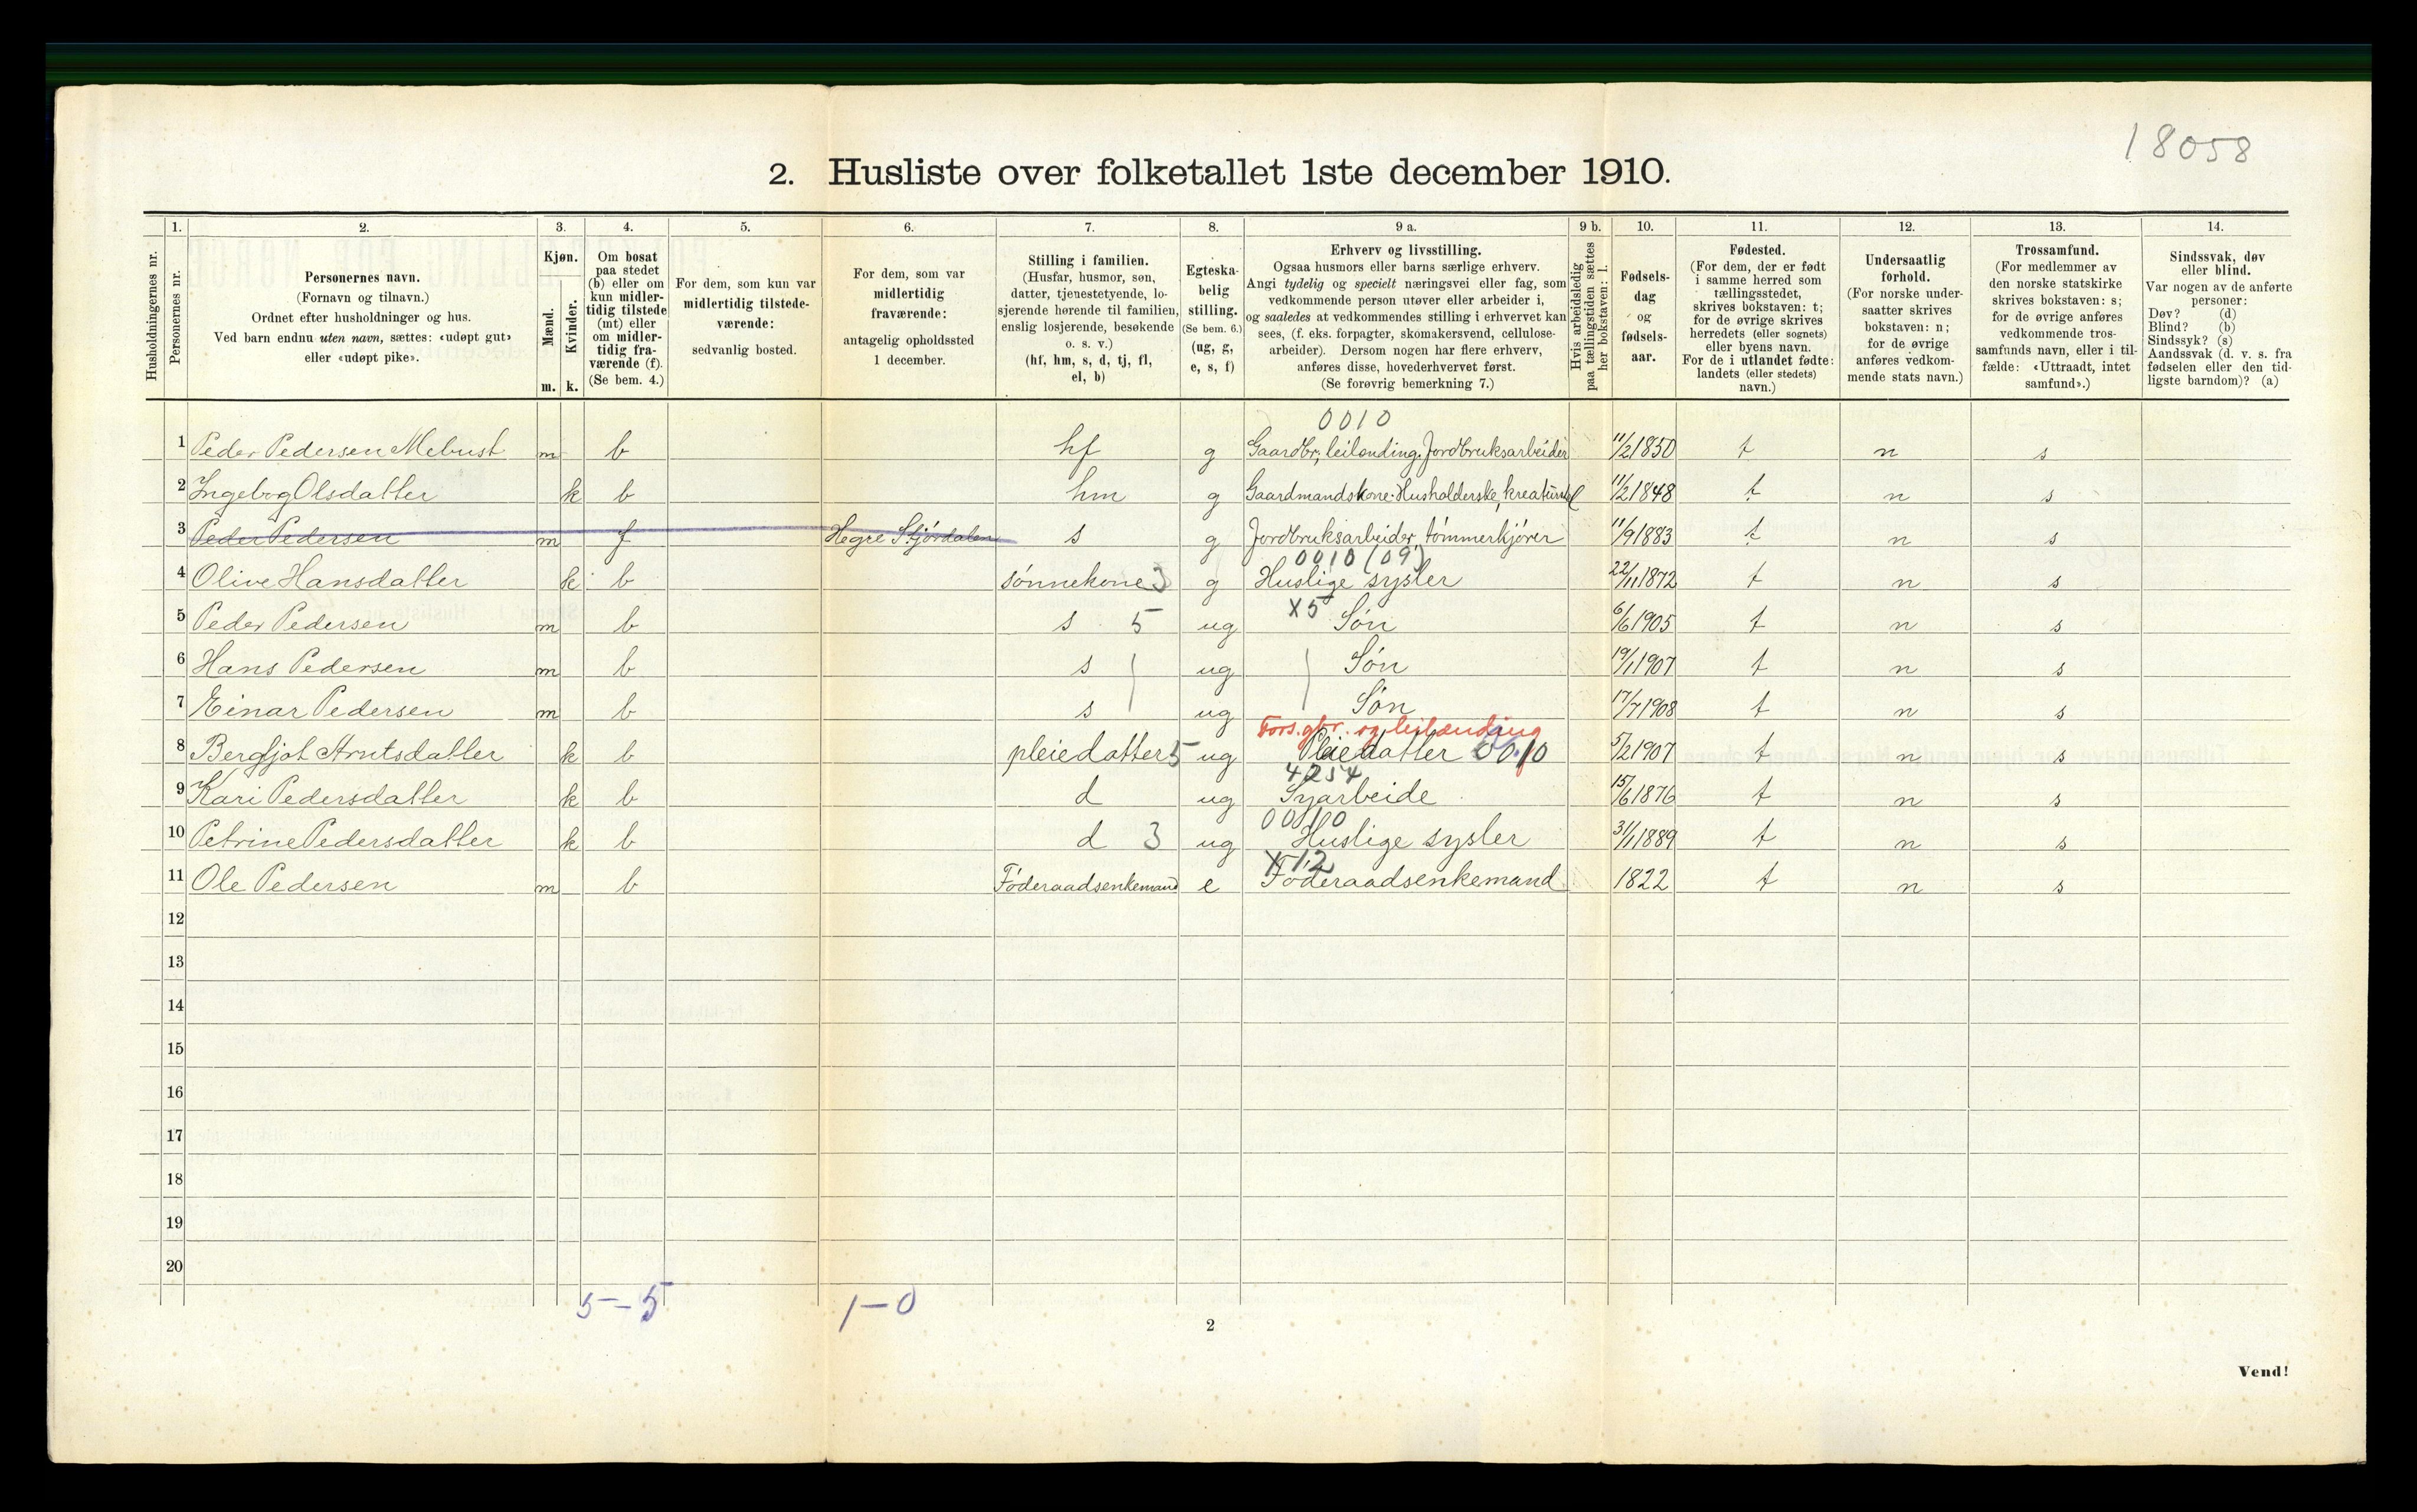 18058
2. Husliste over folketallet 1ste december 1910.
Husholdningernes nr.
1. Personernes nr.
2. Personernes navn. (Fornavn og tilnavn.) Ordnet efter husholdninger og hus. Ved barn endnu uten navn, sættes: «udøpt gut» eller «udøpt pike».
3. Kjøn. Mænd. m. Kvinder. k.
4. Om bosat paa stedet (b) eller om kun midlertidig tilstede (mt) eller om midlertidig fraværende (f). (Se bem. 4.)
5. For dem, som kun var midlertidig tilstedeværende: sedvanlig bosted.
6. For dem, som var midlertidig fraværende: antagelig opholdssted 1 december.
7. Stilling i familien. (Husfar, husmor, søn, datter, tjenestetyende, losjerende hørende til familien, enslig losjerende, besøkende o. s. v.) (hf, hm, s, d, tj, fl, el, b)
8. Egteskabelig stilling. (Se bem. 6.) (ug, g, e, s, f)
9 a. Erhverv og livsstilling. Ogsaa husmors eller barns særlige erhverv. Angi tydelig og specielt næringsvei eller fag, som vedkommende person utøver eller arbeider i, og saaledes at vedkommendes stilling i erhvervet kan sees, (f. eks. forpagter, skomakersvend, cellulosearbeider). Dersom nogen har flere erhverv, anføres disse, hovederhvervet først. (Se forøvrig bemerkning 7.)
9 b. Hvis arbeidsledig paa tællingstiden sættes her bokstaven: l.
10. Fødselsdag og fødselsaar.
11. Fødested. (For dem, der er født i samme herred som tællingsstedet, skrives bokstaven: t; for de øvrige skrives herredets (eller sognets) eller byens navn. For de i utlandet fødte: landets (eller stedets) navn.)
12. Undersaatlig forhold. (For norske undersaatter skrives bokstaven: n; for de øvrige anføres vedkommende stats navn.)
13. Trossamfund. (For medlemmer av den norske statskirke skrives bokstaven: s; for de øvrige anføres vedkommende trossamfunds navn, eller i tilfælde: «Uttraadt, intet samfund».)
14. Sindssvak, døv eller blind. Var nogen av de anførte personer: Døv? (d) Blind? (b) Sindssyk? (s) Aandssvak (d. v. s. fra fødselen eller den tidligste barndom)? (a)
0010
1 Peder Pedersen Mebust m b hf g Gaardbr, leilænding. Jordbruksarbeider 11/2 1850 t n s
2 Ingebrg Olsdatter k b hm g Gaardmandskone. Husholderske, kreaturstel 11/2 1848 t n s
3 Peder Pedersen m f Hegre Stjørdalen s g Jordbruksarbeider, tømmerkjører 11/9 1883 t n s
0010 (09)
4 Olive Hansdatter k b sønnekone 3 g Huslige sysler 22/11 1872 t n s
X5
5 Peder Pedersen m b s 5 ug Søn 6/6 1905 t n s
6 Hans Pedersen m b s ug Søn 19/1 1907 t n s
7 Einar Pedersen m b s ug Søn 17/7 1908 t n s
Fors. gbr. og leilænding
8 Bergljot Arntsdatter k b pleiedatter 5 ug Pleiedatter 00.10 5/2 1907 t n s
4254
9 Kari Pedersdatter k b d ug Syarbeide 15/6 1876 t n s
0010
10 Petrine Pedersdatter k b d 3 ug Huslige sysler 31/1 1889 t n s
X 12
11 Ole Pedersen m b Føderaadsenkemand e Føderaadsenkemand 1822 t n s
12
13
14
15
16
17
18
19
20
5 – 5 1 – 0
2
Vend!